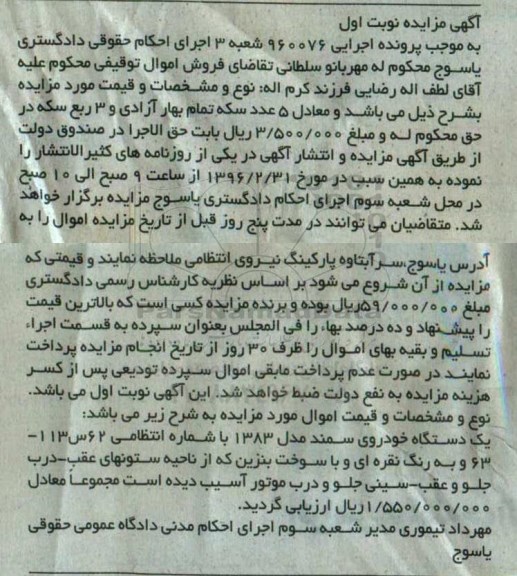 آگهی مزایده نوبت اول
به موجب پرونده اجرایی ۹۶۰۰۷۶ شعبه ۳ اجرای احکام حقوقی دادگستری
یاسوج محکوم له مهربانو سلطانی تقاضای فروش اموال توقیفی محکوم علیه
آقای لطف اله رضایی فرزند کرم اله: نوع و مشخصات و قیمت مورد مزایده
بشرح ذیل می باشد و معادل ۵ عدد سکه تمام بهار آزادی و ۳ ربع سکه در
حق محکوم له و مبلغ ۳/۵۰۰/۰۰۰ ریال بابت حق الاجرا در صندوق دولت
از طریق آگهی مزایده و انتشار آگهی در یکی از روزنامه های کثیرالانتشار را
نموده به همین سبب در مورخ ۱۳۹۶/۲/۳۱ از ساعت ۹ صبح الی ۱۰ صبح
در محل شعبه سوم اجرای احکام دادگستری یاسوج مزایده برگزار خواهد
شد. متقاضیان می توانند در مدت پنج روز قبل از تاریخ مزایده اموال را به
آدرس یاسوج،سرآبتاوه پارکینگ نیروی انتظامی ملاحظه نمایند و قیمتی که
مزایده از آن شروع می شود بر اساس نظریه کارشناس رسمی دادگستری
مبلغ ۵۹/۰۰۰/۰۰۰ریال بوده و برنده مزایده کسی است که بالاترین قیمت
را پیشنهاد و ده درصد بهاء را فی المجلس بعنوان سپرده به قسمت اجراء
تسلیم و بقیه بهای اموال را ظرف ۳۰ روز از تاریخ انجام مزایده پرداخت
نمایند در صورت عدم پرداخت مابقی اموال سپرده تودیعی پس از کسر
هزینه مزایده به نفع دولت ضبط خواهد شد. این آگهی نوبت اول می باشد.
نوع و مشخصات و قیمت اموال مورد مزایده به شرح زیر می باشد:
یک دستگاه خودروی سمند مدل ۱۳۸۳ با شماره انتظامی ۶۲س۱۱۳-
۶۳ و به رنگ نقره ای و با سوخت بنزین که از ناحیه ستونهای عقب-درب
جلو و عقب-سینی جلو و درب موتور آسیب دیده است مجموعا معادل
۱/۵۵۰/۰۰۰/۰۰۰ریال ارزیابی گردید.
مهرداد تیموری مدیر شعبه سوم اجرای احکام مدنی دادگاه عمومی حقوقی
یاسوج